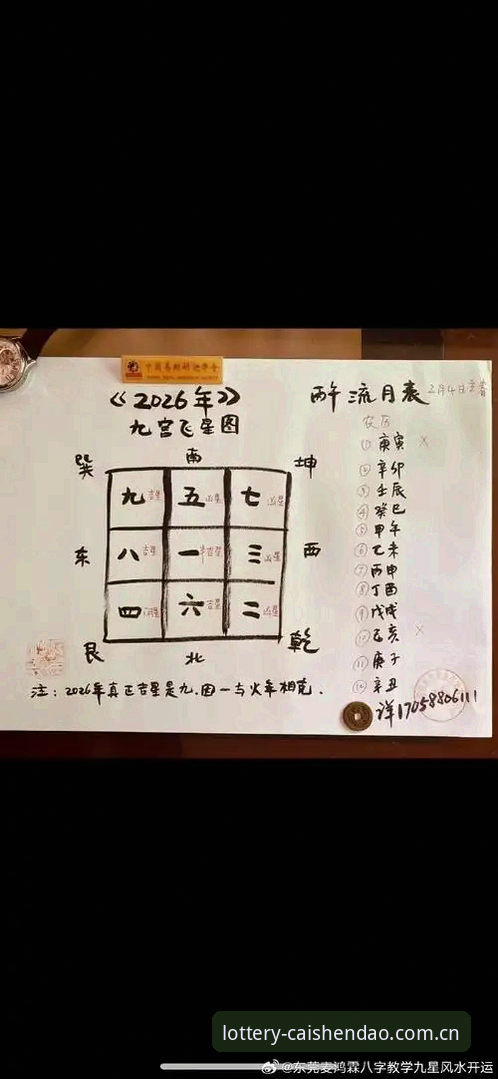 中国易经研究学会
《2026年》
九宫飞星图
巽 南 坤
九 吉星 五 凶星 七 凶星
东 八 吉星 一 半吉星 三 凶星 西
四 六 吉星 二 凶星
艮 北 乾
注：2026年真正吉星是九.因一与火年相克.
丙午流月表
农历
① 庚寅 ×
② 辛卯
③ 壬辰
④ 癸巳
⑤ 甲午
⑥ 乙未
⑦ 丙申
⑧ 丁酉
⑨ 戊戌
⑩ 己亥 ×
⑪ 庚子
⑫ 辛丑
详17058806111
lottery-caishendao.com.cn
@东莞麦鸿霖八字教学九星风水开运